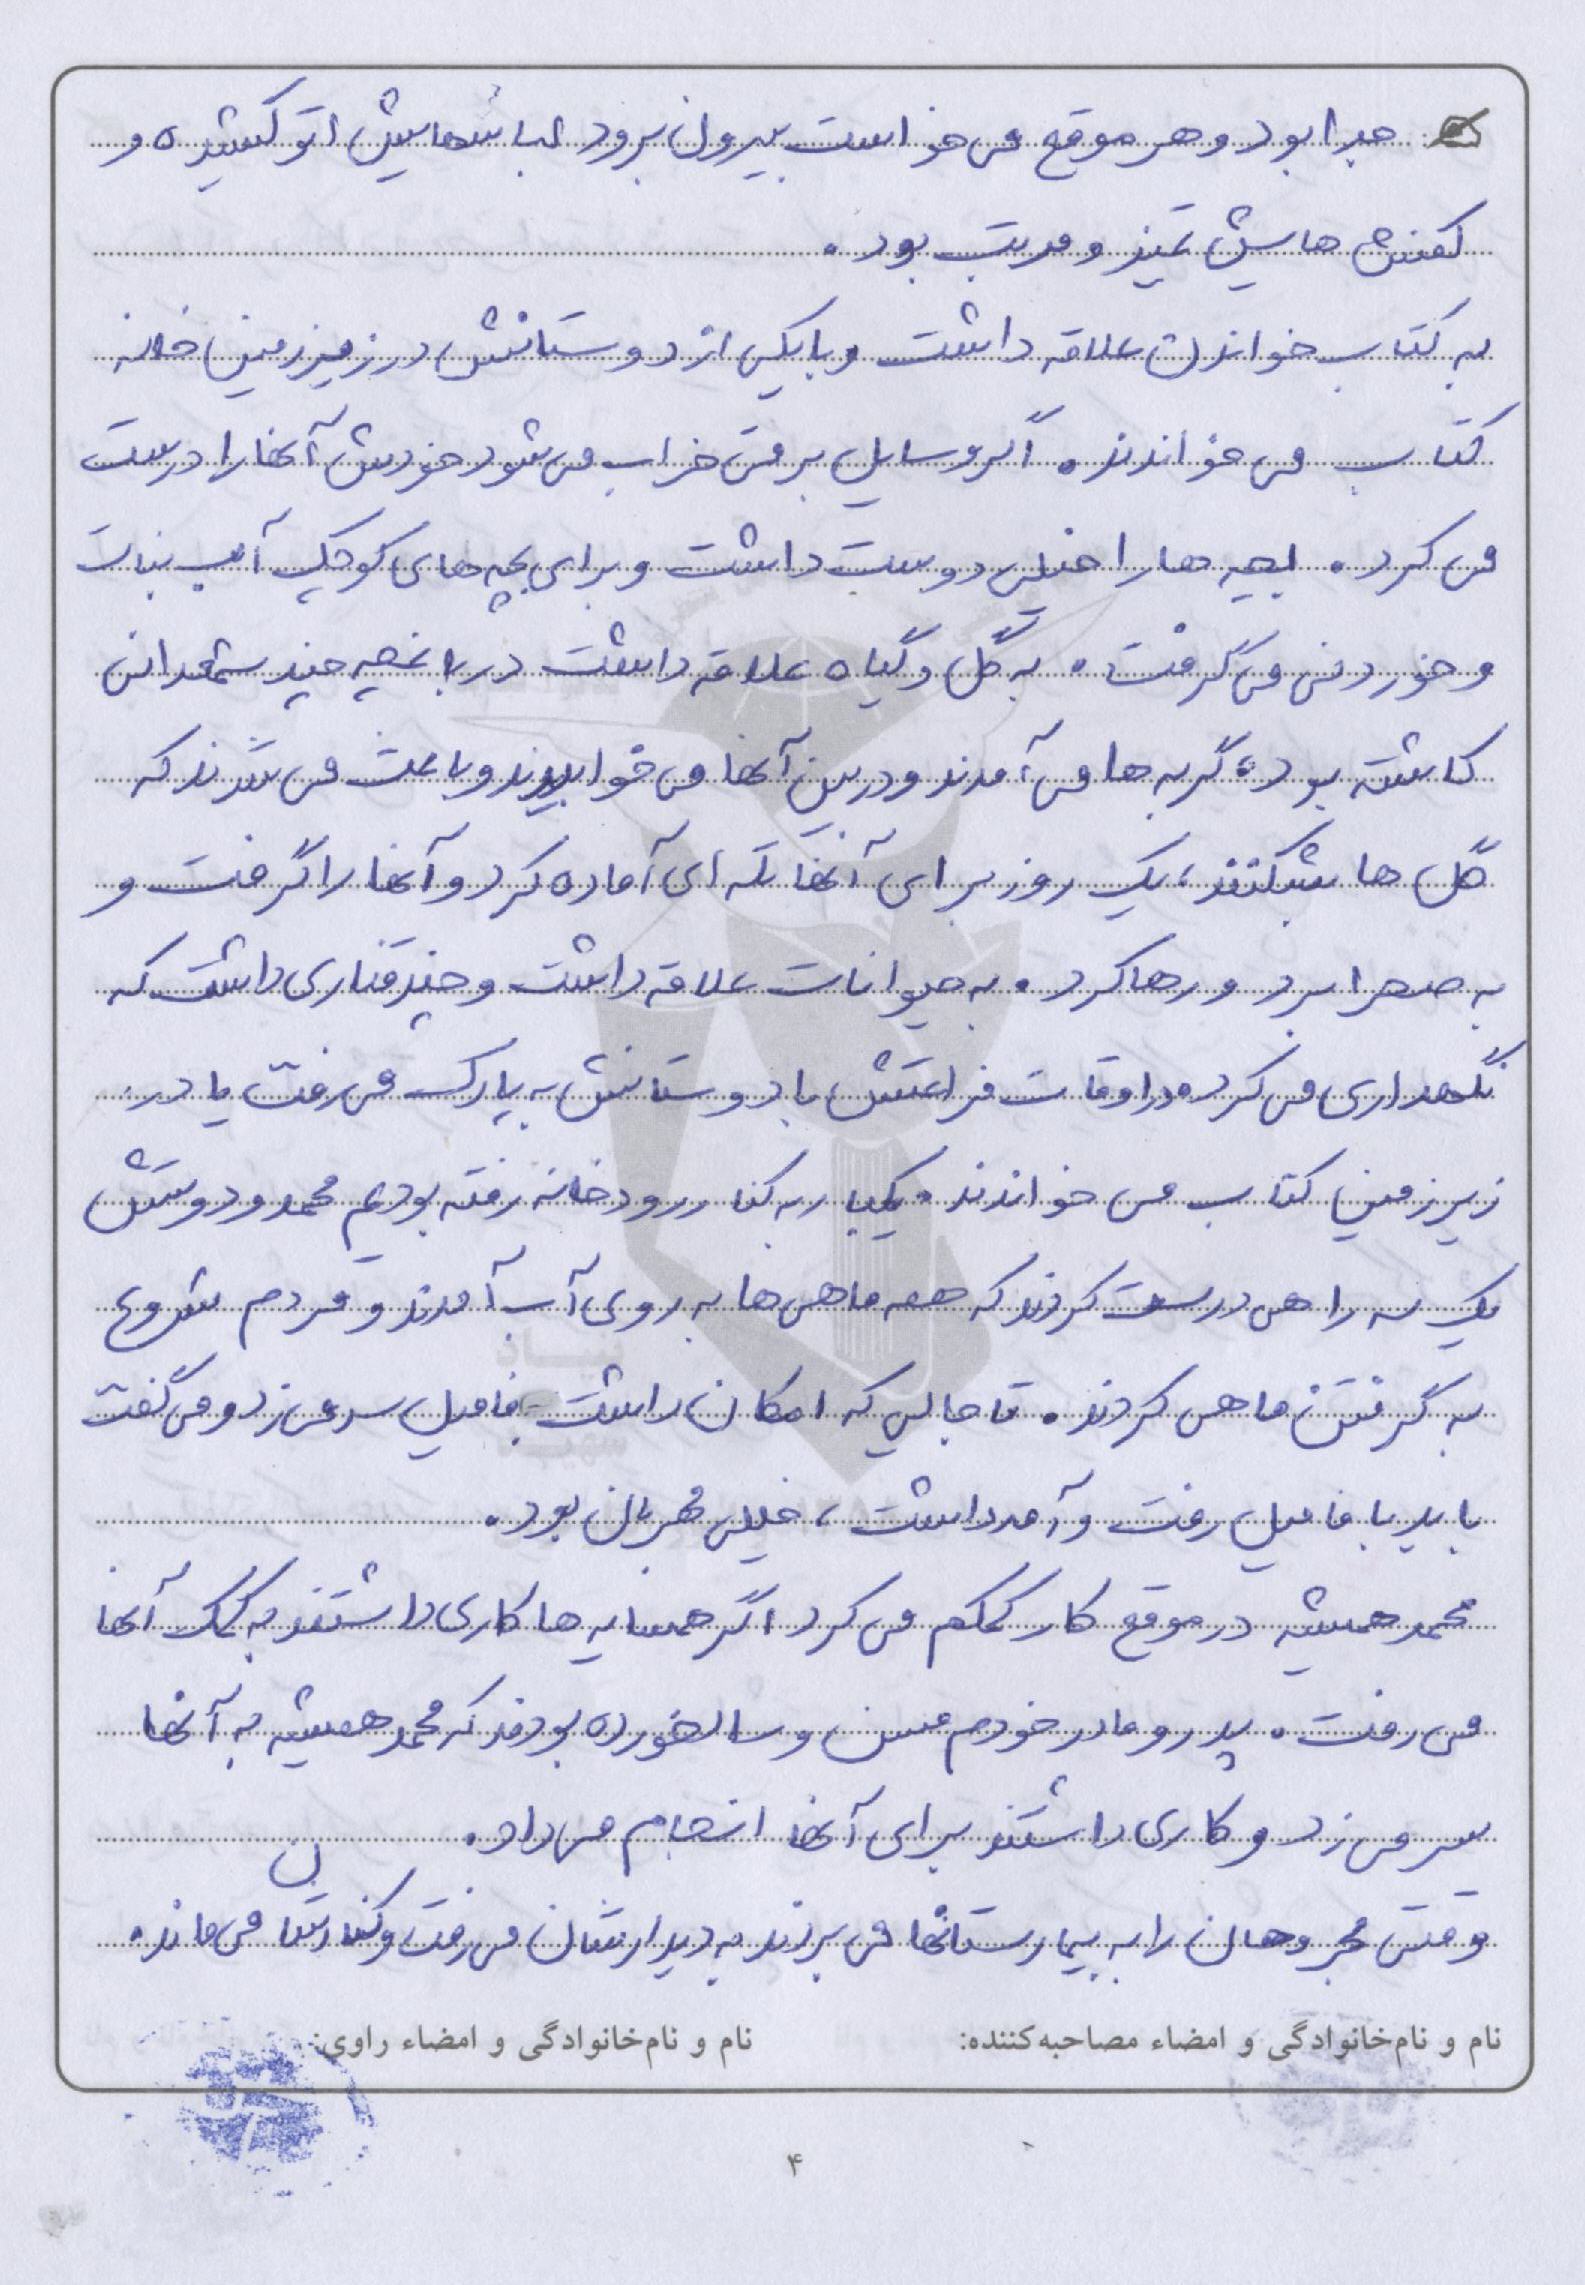 جدا بود و هر موقع می خواست بیرون برود لباسهایش اتو کشیده و
کفش هایش تمیز و مرتب بود.
به کتاب خواندن علاقه داشت و با یکی از دوستانش در زیرزمین خانه
کتاب می خواندند. اگر وسایل برقی خراب می شود خودش آنها را درست
می کرد. بچه ها را خیلی دوست داشت و برای بچه های کوچک آب نبات
و خوردنی می گرفت. به گل و گیاه علاقه داشت در باغچه چند شمعدانی
کاشته بود، گربه ها می آمدند و در بین آنها می خوابیدند و باعث می شدند که
گل ها بشکنند، یک روز برای آنها تله ای آماده کرد و آنها را گرفت و
به صحرا برد و رها کرد. به حیوانات علاقه داشت و چند قناری داشت که
نگهداری می کرد. در اوقات فراغتش با دوستانش به پارک می رفت یا در
زیرزمین کتاب می خواندند. یکبار به کنار رودخانه رفته بودیم محمد و دوستش
یک سه راهی درست کردند که همه ماهی ها به روی آب آمدند و مردم شروع
به گرفتن ماهی کردند. تا جایی که امکان داشت به فامیل سر می زد و می گفت
باید با فامیل رفت و آمد داشت، خیلی مهربان بود.
محمد همیشه در موقع کار کمکم می کرد اگر همسایه ها کاری داشتند به کمک آنها
می رفت. پدر و مادر خودم مسن و سالخورده بودند که محمد همیشه به آنها
سر می زد و کاری داشتند برای آنها انجام می داد.
وقتی مجروحان را به بیمارستانها می بردند به دیدارشان می رفت و کنارشان می ماند.
نام و نام‌خانوادگی و امضاء مصاحبه‌کننده: نام و نام‌خانوادگی و امضاء راوی:
۴